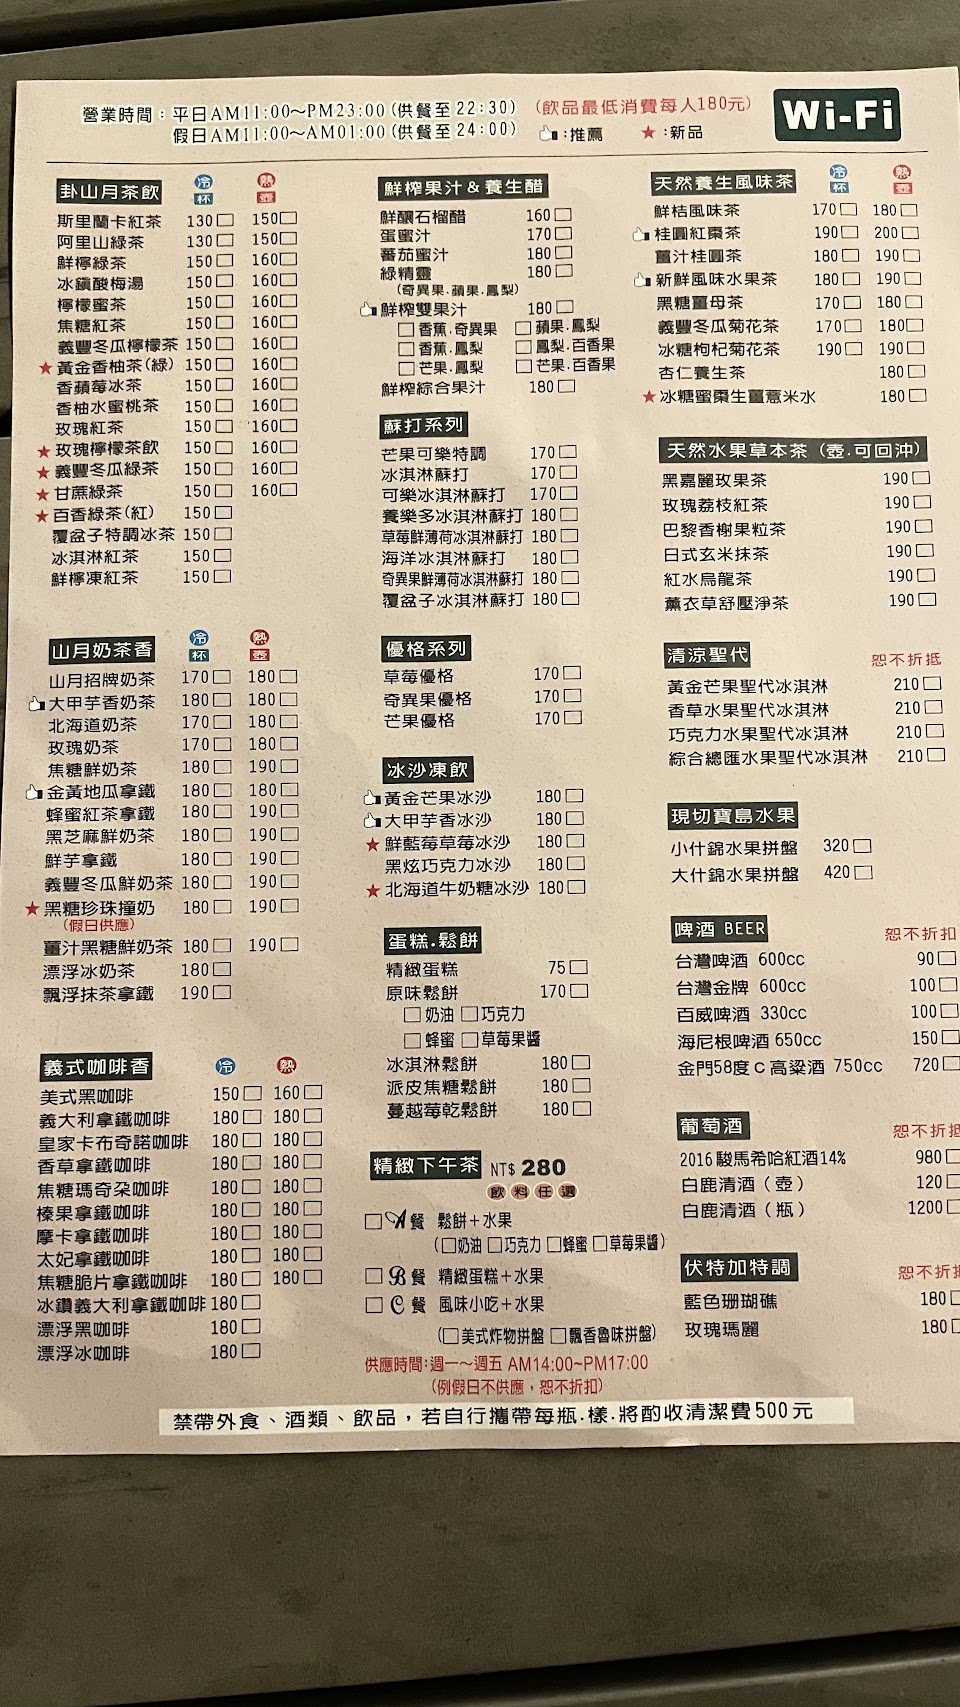 營業時間：平日AM11:00～PM23:00(供餐至22:30)
假日AM11:00～AM01:00(供餐至24:00)
(飲品最低消費每人180元)
：推薦 ★：新品
Wi-Fi
卦山月茶飲 冷杯 熱壺
斯里蘭卡紅茶 130□ 150□
阿里山綠茶 130□ 150□
鮮檸綠茶 150□ 160□
冰鎮酸梅湯 150□ 160□
檸檬蜜茶 150□ 160□
焦糖紅茶 150□ 160□
義豐冬瓜檸檬茶 150□ 160□
★黃金香柚茶(綠) 150□ 160□
香蘋莓冰茶 150□ 160□
香柚水蜜桃茶 150□ 160□
玫瑰紅茶 150□ 160□
★玫瑰檸檬茶飲 150□ 160□
★義豐冬瓜綠茶 150□ 160□
★甘蔗綠茶 150□ 160□
★百香綠茶(紅) 150□
覆盆子特調冰茶 150□
冰淇淋紅茶 150□
鮮檸凍紅茶 150□
山月奶茶香 冷杯 熱壺
山月招牌奶茶 170□ 180□
大甲芋香奶茶 180□ 180□
北海道奶茶 170□ 180□
玫瑰奶茶 170□ 180□
焦糖鮮奶茶 180□ 190□
金黃地瓜拿鐵 180□ 180□
蜂蜜紅茶拿鐵 180□ 190□
黑芝麻鮮奶茶 180□ 190□
鮮芋拿鐵 180□ 190□
義豐冬瓜鮮奶茶 180□ 190□
★黑糖珍珠撞奶 180□ 190□
(假日供應)
薑汁黑糖鮮奶茶 180□ 190□
漂浮冰奶茶 180□
飄浮抹茶拿鐵 190□
義式咖啡香 冷 熱
美式黑咖啡 150□ 160□
義大利拿鐵咖啡 180□ 180□
皇家卡布奇諾咖啡 180□ 180□
香草拿鐵咖啡 180□ 180□
焦糖瑪奇朶咖啡 180□ 180□
榛果拿鐵咖啡 180□ 180□
摩卡拿鐵咖啡 180□ 180□
太妃拿鐵咖啡 180□ 180□
焦糖脆片拿鐵咖啡 180□ 180□
冰鑽義大利拿鐵咖啡 180□
漂浮黑咖啡 180□
漂浮冰咖啡 180□
鮮榨果汁＆養生醋
鮮釀石榴醋 160□
蛋蜜汁 170□
蕃茄蜜汁 180□
綠精靈 180□
(奇異果.蘋果.鳳梨)
鮮榨雙果汁 180□
□香蕉.奇異果 □蘋果.鳳梨
□香蕉.鳳梨 □鳳梨.百香果
□芒果.鳳梨 □芒果.百香果
鮮榨綜合果汁 180□
蘇打系列
芒果可樂特調 170□
冰淇淋蘇打 170□
可樂冰淇淋蘇打 170□
養樂多冰淇淋蘇打 180□
草莓鮮薄荷冰淇淋蘇打 180□
海洋冰淇淋蘇打 180□
奇異果鮮薄荷冰淇淋蘇打 180□
覆盆子冰淇淋蘇打 180□
優格系列
草莓優格 170□
奇異果優格 170□
芒果優格 170□
冰沙凍飲
黃金芒果冰沙 180□
大甲芋香冰沙 180□
★鮮藍莓草莓冰沙 180□
黑炫巧克力冰沙 180□
★北海道牛奶糖冰沙 180□
蛋糕.鬆餅
精緻蛋糕 75□
原味鬆餅 170□
□奶油 □巧克力
□蜂蜜 □草莓果醬
冰淇淋鬆餅 180□
派皮焦糖鬆餅 180□
蔓越莓乾鬆餅 180□
精緻下午茶 NT$ 280
飲料任選
□A餐 鬆餅＋水果
(□奶油 □巧克力 □蜂蜜 □草莓果醬)
□B餐 精緻蛋糕＋水果
□C餐 風味小吃＋水果
(□美式炸物拼盤 □飄香魯味拼盤)
供應時間:週一～週五 AM14:00~PM17:00
(例假日不供應，恕不折扣)
天然養生風味茶 冷杯 熱壺
鮮桔風味茶 170□ 180□
桂圓紅棗茶 190□ 200□
薑汁桂圓茶 180□ 190□
新鮮風味水果茶 180□ 190□
黑糖薑母茶 170□ 180□
義豐冬瓜菊花茶 170□ 180□
冰糖枸杞菊花茶 190□ 190□
杏仁養生茶 180□
★冰糖蜜棗生薑薏米水 180□
天然水果草本茶（壺.可回沖）
黑嘉麗玫果茶 190□
玫瑰荔枝紅茶 190□
巴黎香榭果粒茶 190□
日式玄米抹茶 190□
紅水烏龍茶 190□
薰衣草舒壓淨茶 190□
清涼聖代 恕不折抵
黃金芒果聖代冰淇淋 210□
香草水果聖代冰淇淋 210□
巧克力水果聖代冰淇淋 210□
綜合總匯水果聖代冰淇淋 210□
現切寶島水果
小什錦水果拼盤 320□
大什錦水果拼盤 420□
啤酒 BEER 恕不折扣
台灣啤酒 600cc 90□
台灣金牌 600cc 100□
百威啤酒 330cc 100□
海尼根啤酒 650cc 150□
金門58度c高粱酒 750cc 720□
葡萄酒 恕不折抵
2016駿馬希哈紅酒14% 980□
白鹿清酒（壺） 120□
白鹿清酒（瓶） 1200□
伏特加特調 恕不折抵
藍色珊瑚礁 180□
玫瑰瑪麗 180□
禁帶外食、酒類、飲品，若自行攜帶每瓶.樣.將酌收清潔費500元